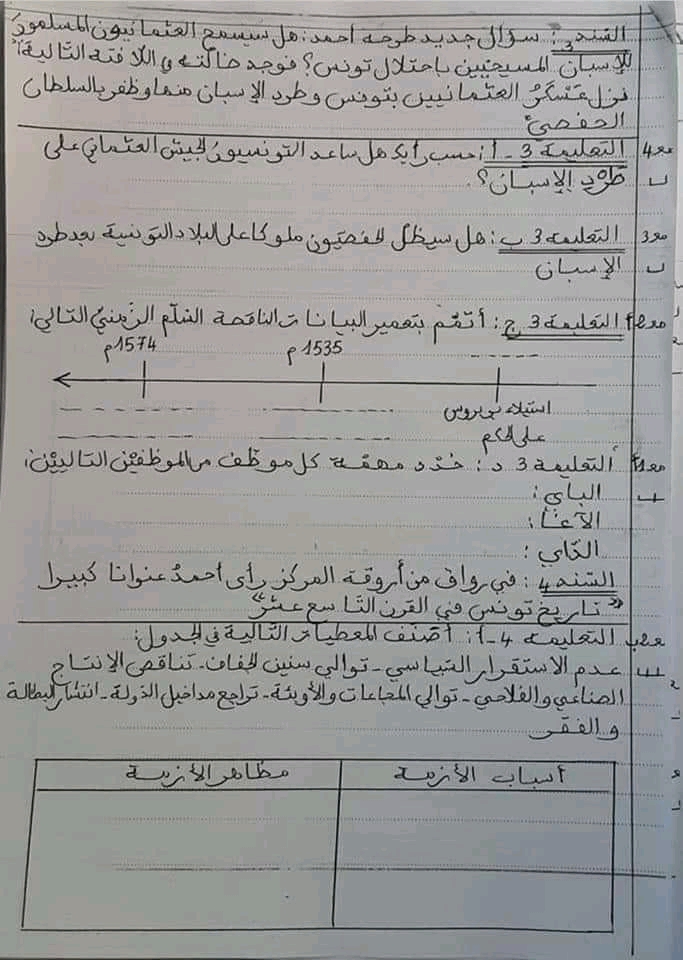 السّند 3: سؤال جديد طرحه أحمد: هل سيسمح العثمانيون المسلمون
للإسبان المسيحيين باحتلال تونس؟ فوجد ضالّته في اللّافتة التالية:
نزل عَسْكَرُ العثمانيين بتونس وطرد الإسبان منها وظفر بالسلطان
الحفصيّ
مع4 التعليمة 3 - أ: حسب رأيك هل ساعد التونسيون الجيش العثماني على
طرْد الإسبان؟
مع3 التعليمة 3 ب: هل سيظلّ الحفصيّون ملوكا على البلاد التونسية بعد طرد
الإسبان
التعليمة 3 ج: أتمّم بتعمير البيانات الناقصة السّلّم الزّمنيّ التالي:
1574م 1535م ------
استيلاء بني بروس
على الحكم
التعليمة 3 د: حدّد مهمّة كلّ موظّف من الموظّفيْن التالييْن:
الباي:
الآغا:
الدّاي:
السّند 4: في رواق من أروقة المركز رأى أحمدُ عنوانا كبيرا
«تاريخ تونس في القرن التّاسع عشر»
التعليمة 4-أ: أصنّف المعطيات التالية في الجدول:
عدم الاستقرار السّياسي - توالي سنين الجفاف - تناقص الإنتاج
الصناعي والفلاحي - توالي المجاعات والأوبئة - تراجع مداخيل الدّولة - انتشار البطالة
والفقر
أسباب الأزمة مظاهر الأزمة